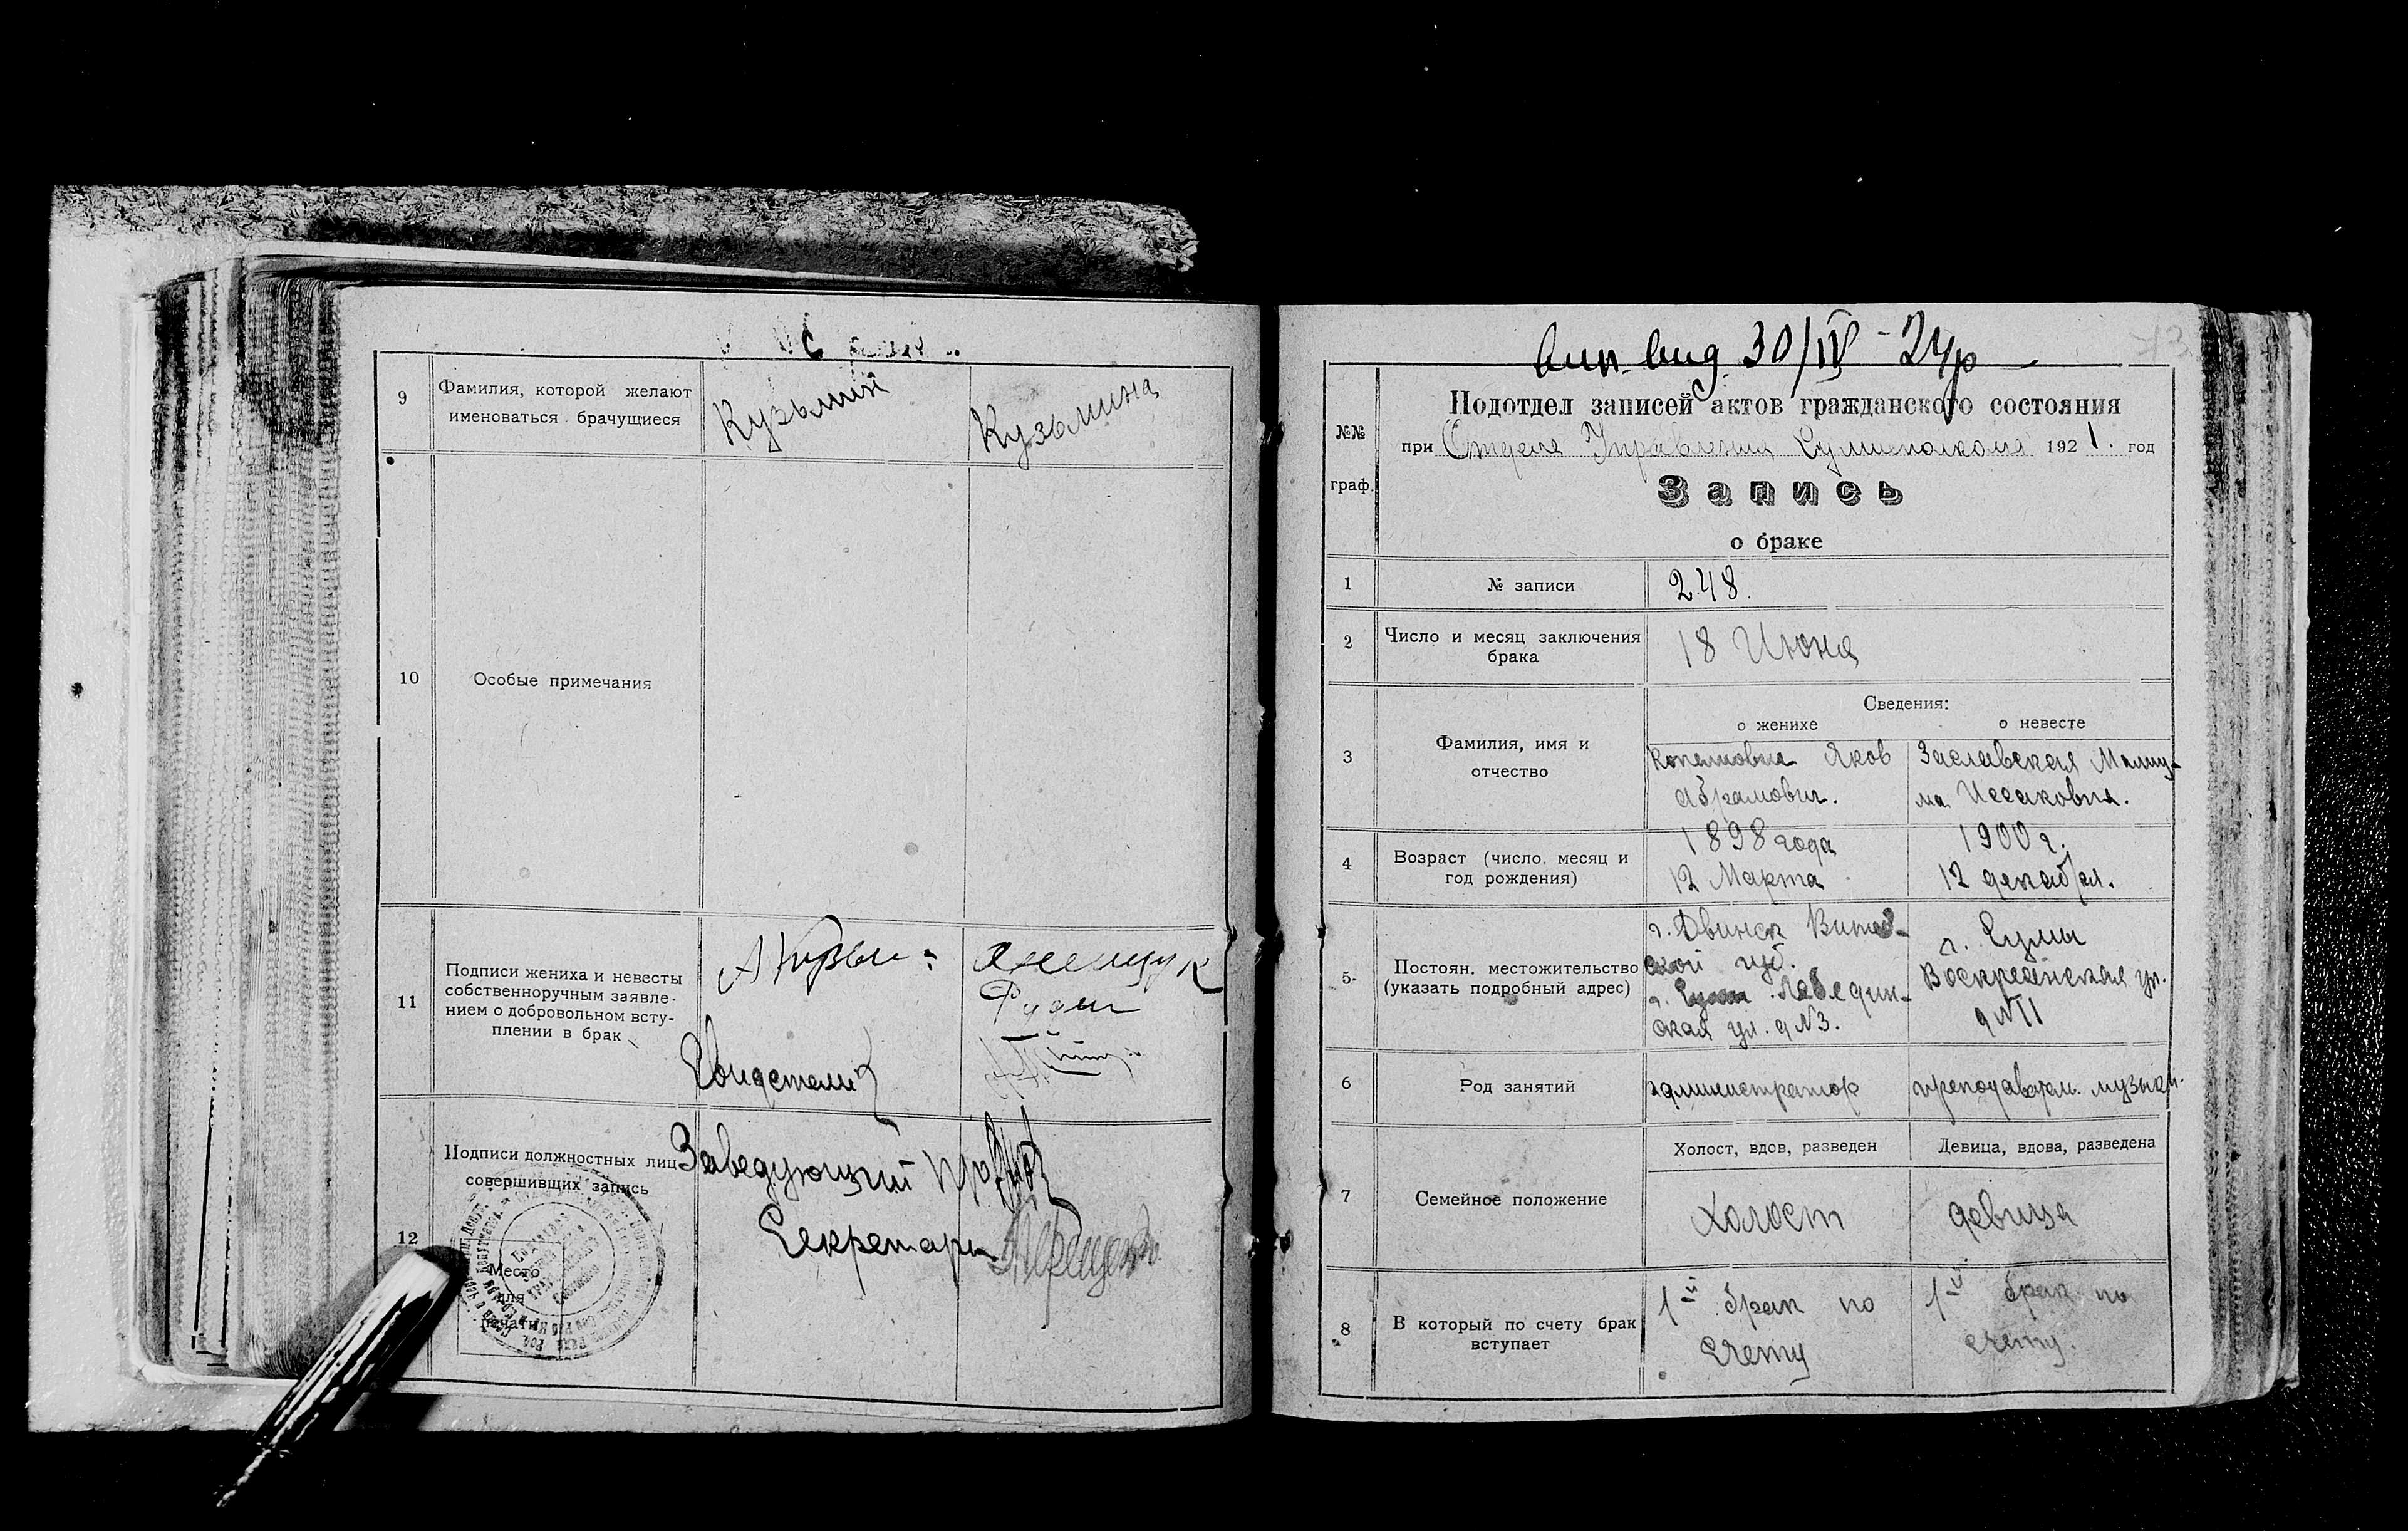 9
Фамилия, которой желают
именоваться брачущиеся
Кузьмин
Кузьмина
10
Особые примечания
11
Подписи жениха и невесты
собственноручным заявле-
нием о добровольном всту-
плении в брак
Свидетели
12
Подписи должностных лиц
совершивших запись
Заведующий
Секретарь
Место
для
печати
30/IV - 24р
№№
граф.
Подотдел записей актов гражданского состояния
при Отделе Управления 1921. год
Запись
о браке
1
№ записи
248.
2
Число и месяц заключения
брака
18 Июня
3
Фамилия, имя и
отчество
Сведения:
о женихе
о невесте
Яков
Абрамович.
Заславская
Исаковна.
4
Возраст (число, месяц и
год рождения)
1898 года
12 Марта
1900 г.
12 декабря.
5
Постоян. местожительство
(указать подробный адрес)
г. Двинск Витеб-
ской губ.
г. Сумы Лебедин-
ская ул. д №3.
г. Сумы
Воскресенская ул.
д №11
6
Род занятий
администратор
преподават. музыки.
7
Семейное положение
Холост, вдов, разведен
Девица, вдова, разведена
Холост
девица
8
В который по счету брак
вступает
1-й брак по
счету
1-й брак по
счету.